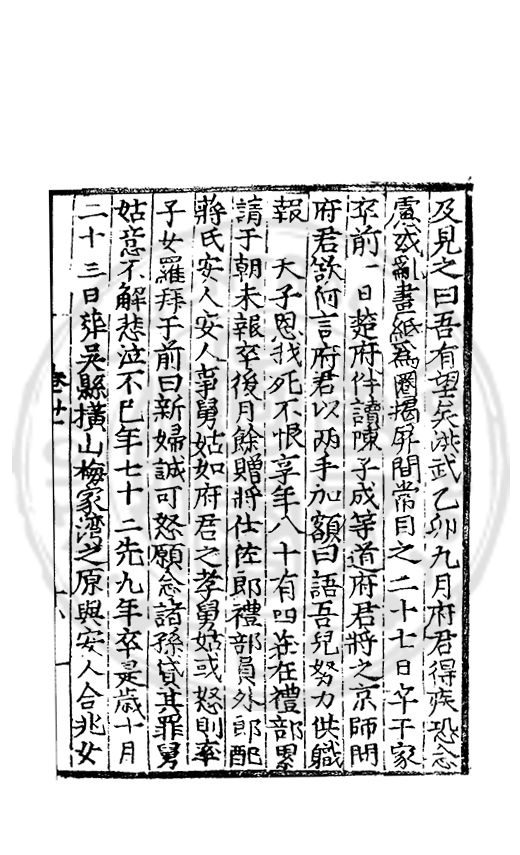 及見之曰吾有望矣洪武乙卯九月府君得疾恐念
慮或亂畫紙爲圈揭屏間常目之二十七日卒于家
卒前一日楚府伴讀陳子成等道府君將之京師問
府君欲何言府君以兩手加額曰語吾兒努力供職
報　天子恩我死不恨享年八十有四茂在禮部累
請于朝未報卒後月餘贈將仕佐郎禮部員外郎配
蔣氏安人安人事舅姑如府君之孝舅姑或怒則率
子女羅拜于前曰新婦誠可怒願念諸孫貸其罪舅
姑意不解悲泣不已年七十二先九年卒是歲十月
二十三日葬吳縣橫山梅家灣之原與安人合兆女
卷十一
十八